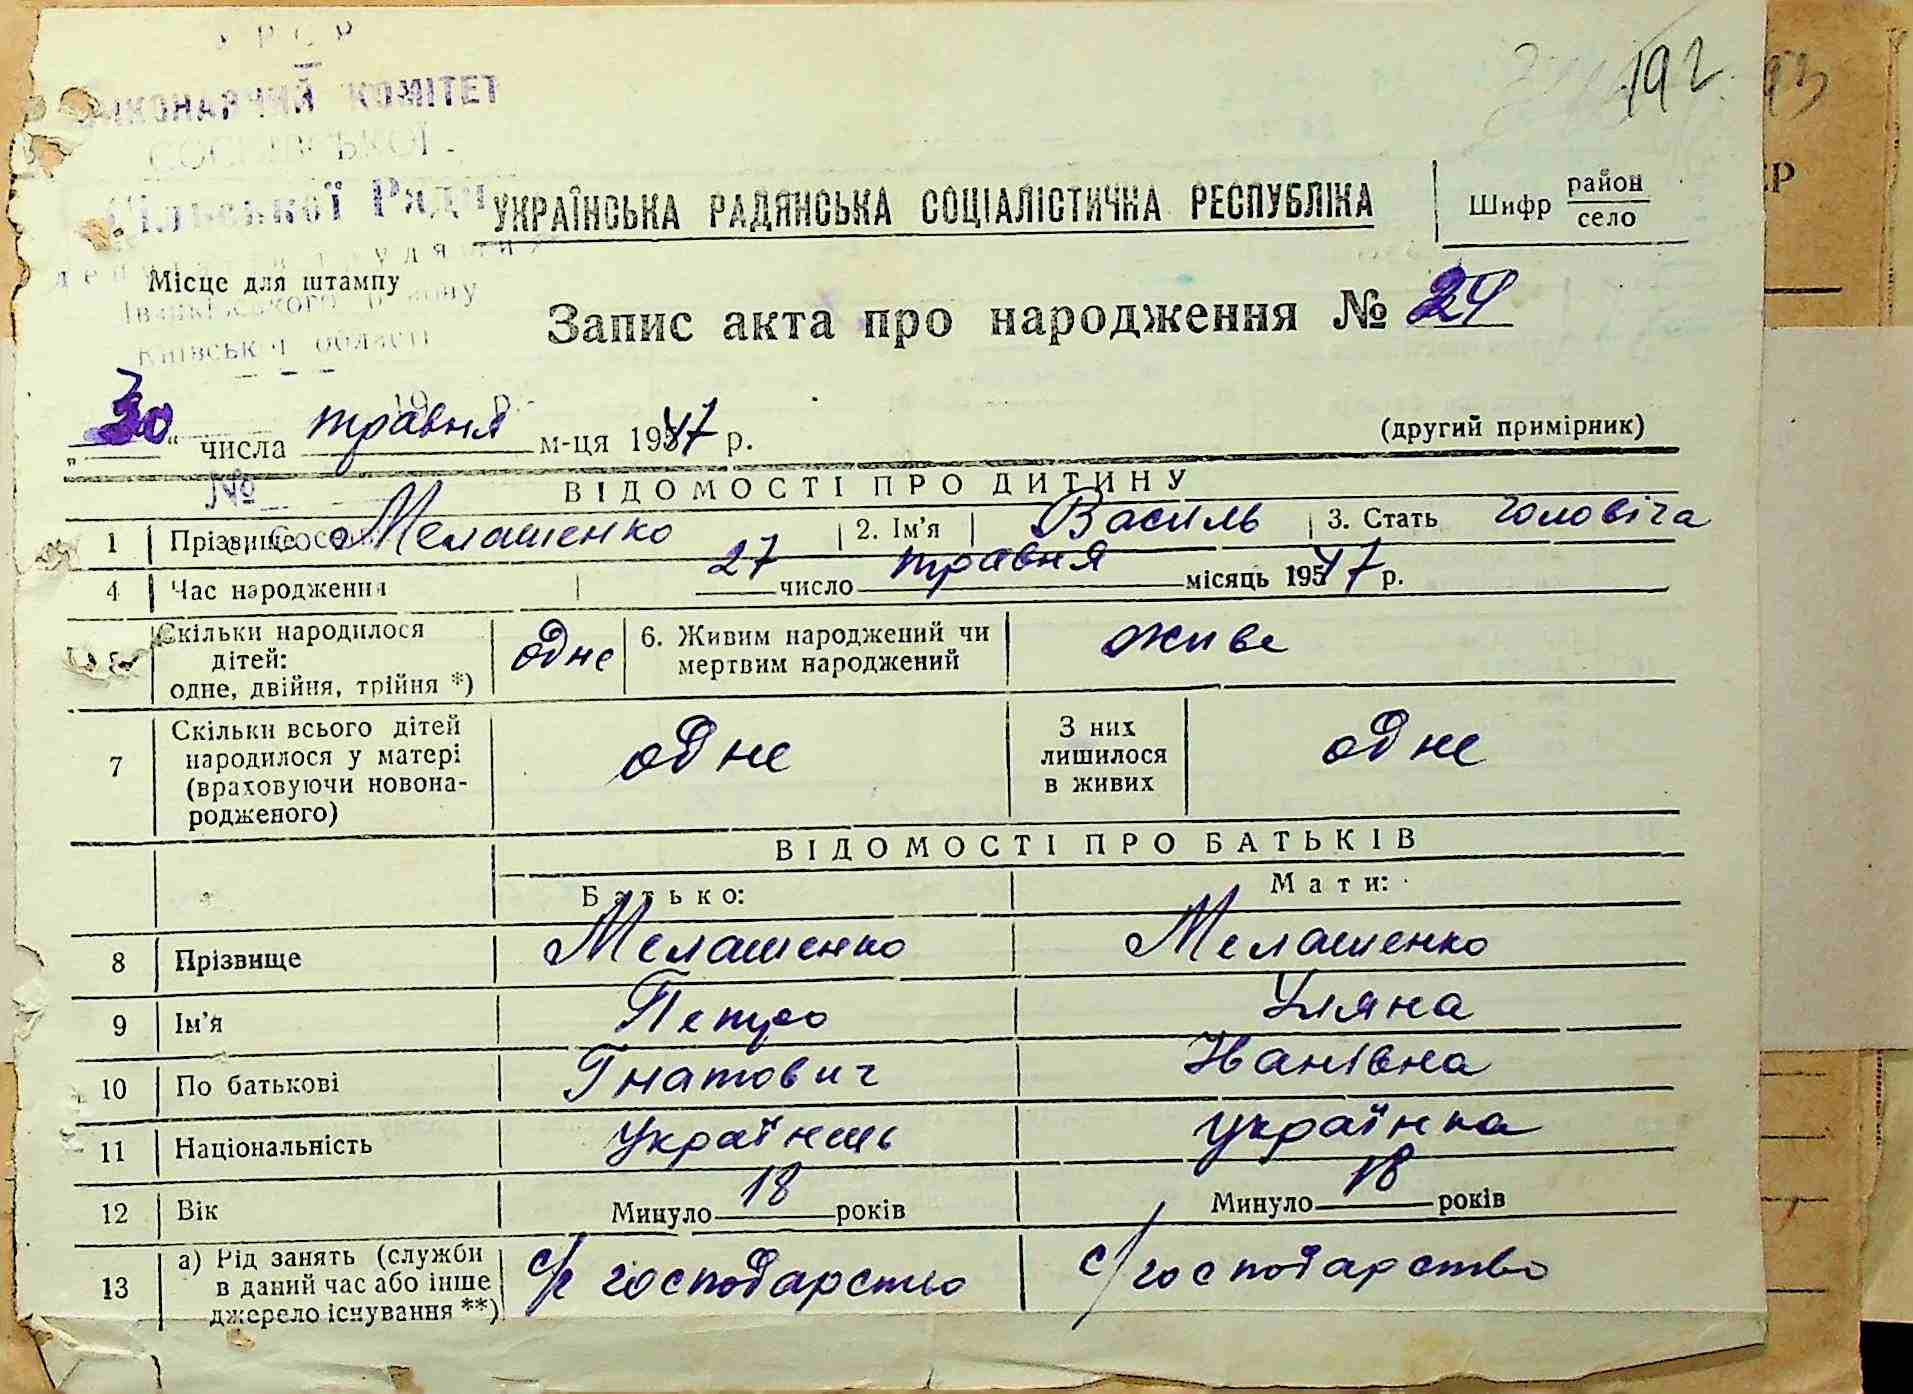 У Р С Р
ВИКОНАВЧИЙ КОМІТЕТ
192.
93
Сільської Ради
УКРАЇНСЬКА РАДЯНСЬКА СОЦІАЛІСТИЧНА РЕСПУБЛІКА
Шифр район
село
ЕР
Місце для штампу
Іванківського району
Київської області
Запис акта про народження № 24
„30“ числа травня м-ця 1947 р.
(другий примірник)
№
ВІДОМОСТІ ПРО ДИТИНУ
1 Прізвище Мелашенко 2. Ім’я Василь 3. Стать чоловіча
4 Час народження 27 число травня місяць 1947 р.
Скільки народилося дітей: одне, двійня, трійня *) одне 6. Живим народжений чи мертвим народжений живе
7 Скільки всього дітей народилося у матері (враховуючи новонародженого) одне З них лишилося в живих одне
ВІДОМОСТІ ПРО БАТЬКІВ
Батько: Мати:
8 Прізвище Мелашенко Мелашенко
9 Ім’я Петро Уляна
10 По батькові Гнатович Іванівна
11 Національність Українець українка
12 Вік Минуло 18 років Минуло 18 років
13 а) Рід занять (служби в даний час або інше джерело існування **) с/г господарство с/господарство